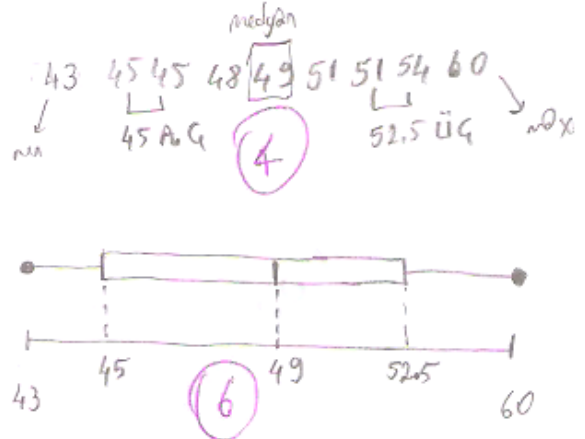 medyan
43 45 45 48 49 51 51 54 60
min 45 A.G 52.5 ÜG max
4
45 49 52.5
43 6 60